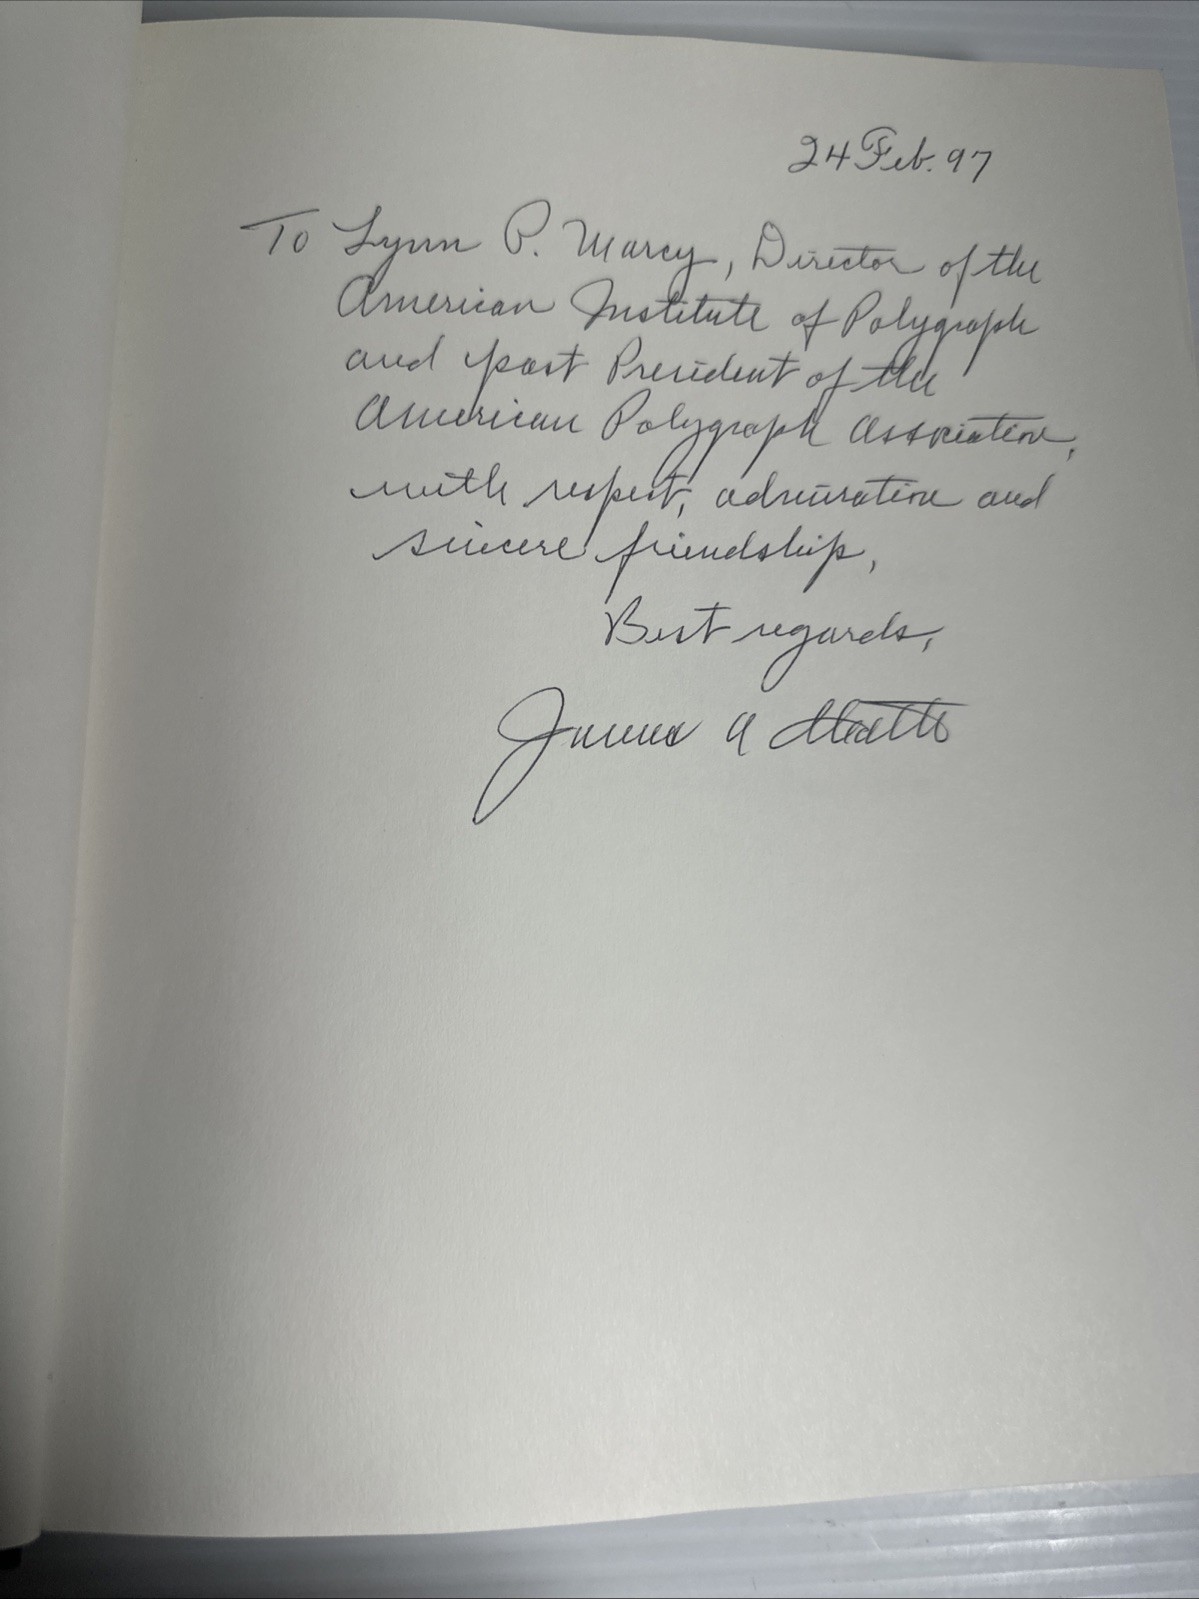 24 Feb. 97
To Lynn P. Marcy, Director of the
American Institute of Polygraph
and past President of the
American Polygraph Association,
with respect, admiration and
sincere friendship,
Best regards,
James A